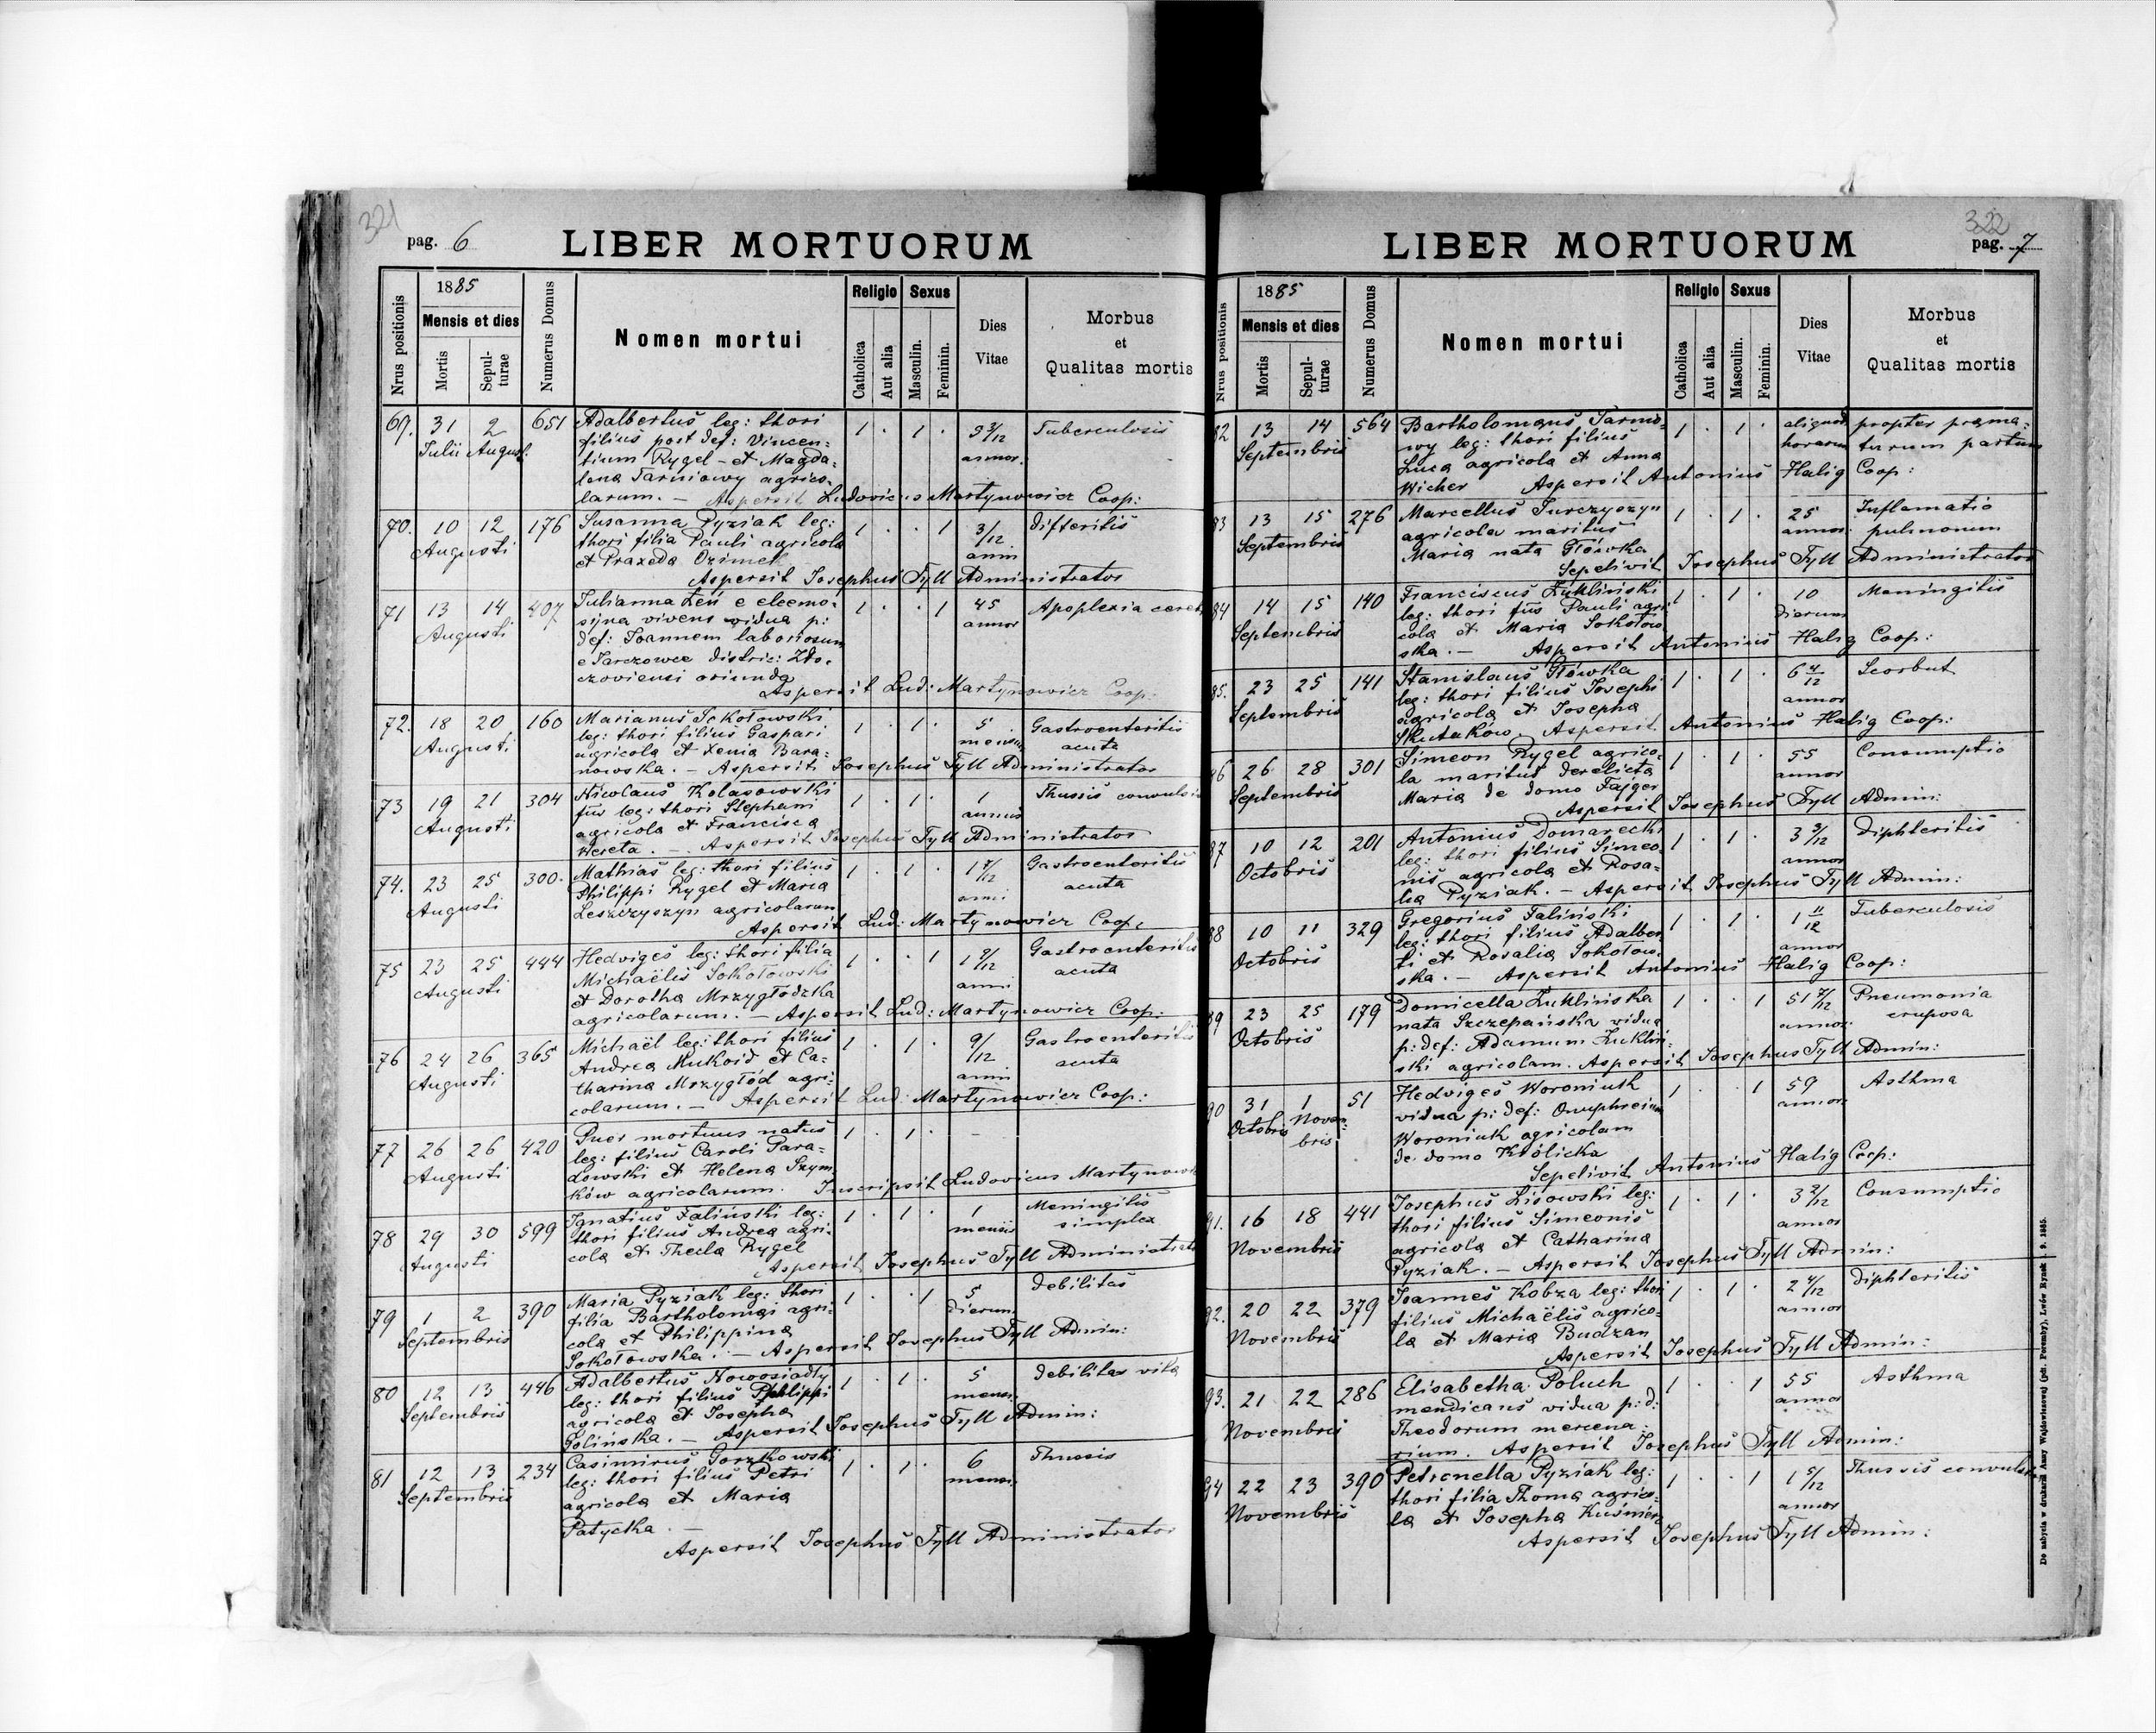 321
pag. 6
LIBER MORTUORUM
Nrus positionis
1885
Mensis et dies
Mortis
Sepul-
turae
Numerus Domus
Nomen mortui
Religio
Catholica
Aut alia
Sexus
Masculin.
Feminin.
Dies
Vitae
Morbus
et
Qualitas mortis
69. 31 2 651 Adalbertus leg: thori 1 . 1 . 3 3/12 Tuberculosis
Julii August. filius post def: Vincen: annor.
tium Rygel - et Magda:
lena Tarniowy agrico:
larum. - Aspersit Ludovicus Martynowicz Coop:
70. 10 12 176 Susanna Pyziak leg: 1 . . 1 3/12 Difteritis
Augusti thori filia Pauli agricola anni
et Praxeda Ozimek
Aspersit Josephus Tyll Administrator
71 13 14 407 Julianna Leń e eleemo: 1 . . 1 45 Apoplexia cereb
Augusti sijna vivens vidua p: annor
def: Joannem laboriosum
e Jarczowce distric: Zło:
czoviensi oriunda
Aspersit Lud: Martynowicz Coop:
72. 18 20 160 Marianus Sokołowski 1 . 1 . 5 Gastroenteritis
Augusti leg: thori filius Gaspari mensium acuta
agricola et Xenia Bara:
nowska. - Aspersit Josephus Tyll Administrator
73 19 21 304 Nicolaus Kolasowski 1 . 1 . 1 Thussis convulsi
Augusti fiis leg: thori Stephani annus
agricola et Francisca
Wereta. - Aspersit Josephus Tyll Administrator
74. 23 25 300. Mathias leg: thori filius 1 . 1 . 1 7/12 Gastroenteritis
Augusti Philippi Rygel et Maria anni acuta
Leszczyszyn agricolarum
Aspersit Lud: Martynowicz Coop:
75 23 25 444 Hedviges leg: thori filia 1 . . 1 1 9/12 Gastroenteritis
Augusti Michaëlis Sokołowski anni acuta
et Dorotha Mrzygłodzka
agricolarum. - Aspersit Lud: Martynowicz Coop:
76 24 26 365 Michaël leg: thori filius 1 . 1 . 9/12 Gastroenteritis
Augusti Andrea Mukoid et Ca: anni acuta
tharina Mrzygłód agri:
colarum. - Aspersit Lud: Martynowicz Coop:
77 26 26 420 Puer mortuus natus 1 . 1 . -
Augusti leg: filius Caroli Para:
dowski et Helena Szym
ków agricolarum. Inscripsit Ludovicus Martynowi
78 29 30 599 Ignatius Faliński leg: 1 . 1 . 1 Meningitis
Augusti thori filius Andrea agri: mensis simplex
cola et Thecla Rygel
Aspersit Josephus Tyll Administrat
79 1 2 390 Maria Pyziak leg: thori 1 . . 1 5 Debilitas
Septembris filia Bartholomæi agri: dierum.
cola et Philippina
Sokołowska. - Aspersit Josephus Tyll Admin:
80 12 13 446 Adalbertus Nowosiadły 1 . 1 . 5 Debilitas vita
Septembris leg: thori filius Philippi mens.
agricola et Josepha
Golińska. - Aspersit Josephus Tyll Admin:
81 12 13 234 Casimirus Gorzkowski 1 . 1 . 6 Thussis
Septembris leg: thori filius Petri mens.
agricola et Maria
Patycka. -
Aspersit Josephus Tyll Administrator
322
LIBER MORTUORUM
pag. 7
Nrus positionis
1885
Mensis et dies
Mortis
Sepul-
turae
Numerus Domus
Nomen mortui
Religio
Catholica
Aut alia
Sexus
Masculin.
Feminin.
Dies
Vitae
Morbus
et
Qualitas mortis
82 13 14 564 Bartholomæus Tarnio: 1 . 1 . aliquod propter præma:
Septembris wy leg: thori filius horarum turum partum
Luca agricola et Anna
Wicher Aspersit Antonius Halig Coop:
83 13 15 276 Marcellus Jurczyszyn 1 . 1 . 25 Inflamatio
Septembris agricola maritus annor. pulmonum
Maria nata Główka
Sepelivit Josephus Tyll Administrator
84 14 15 140 Franciscus Lukliński 1 . 1 . 10 Meningitis
Septembris leg: thori fiis Pauli agri: dierum
cola et Maria Sokołow
ska. - Aspersit Antonius Halig Coop:
85. 23 25 141 Stanislaus Główka 1 . 1 . 6 4/12 Scorbut
Septembris leg: thori filius Josephi annor
agricola et Josepha
Skutaków. Aspersit Antonius Halig Coop:
86 26 28 301 Simeon Rygel agrico: 1 . 1 . 55 Consumptio
Septembris la maritus derelicta annor
Maria de domo Fajger
Aspersit Josephus Tyll Admin:
87 10 12 201 Antonius Domarecki 1 . 1 . 3 3/12 Diphteritis
Octobris leg: thori filius Simeo: annor
nis agricola et Rosa:
lia Pyziak. - Aspersit Josephus Tyll Admin:
88 10 11 329 Gregorius Faliński 1 . 1 . 1 11/12 Tuberculosis
Octobris leg: thori filius Adalber annor
ti et Rosalia Sokołow:
ska. - Aspersit Antonius Halig Coop:
89 23 25 179 Domicella Luklińska 1 . . 1 51 7/12 Pneumonia
Octobris nata Szczepańska vidua annor. cruposa
p: def: Adamum Lukliń:
ski agricolam. Aspersit Josephus Tyll Admin:
90 31 1 51 Hedviges Woroniuk 1 . . 1 59 Asthma
Octobris Novem- vidua p: def: Onuphreium annor.
bris Woroniuk agricolam
de domo Królicka
Sepelivit Antonius Halig Coop:
91. 16 18 441 Josephus Lisowski leg: 1 . 1 . 3 2/12 Consumptio
Novembris thori filius Simeonis annor
agricola et Catharina
Pyziak. - Aspersit Josephus Tyll Admin:
92. 20 22 379 Joannes Kobza leg: thori 1 . 1 . 2 4/12 Diphteritis
Novembris filius Michaëlis agrico: annor
la et Maria Budzan
Aspersit Josephus Tyll Admin:
93. 21 22 286 Elisabetha Poluch 1 . . 1 55 Asthma
Novembris mendicans vidua p: d: annor
Theodorum mercena:
rium. Aspersit Josephus Tyll Admin:
94 22 23 390 Petronella Pyziak leg: 1 . . 1 1 5/12 Thussis convuls
Novembris thori filia Thoma agrico: annor
la et Josepha Kuśnierz
Aspersit Josephus Tyll Admin:
Do nabycia w drukarni Anny Wajdowiczowej (pod. Poremby), Lwów Rynek l. 9. 1885.